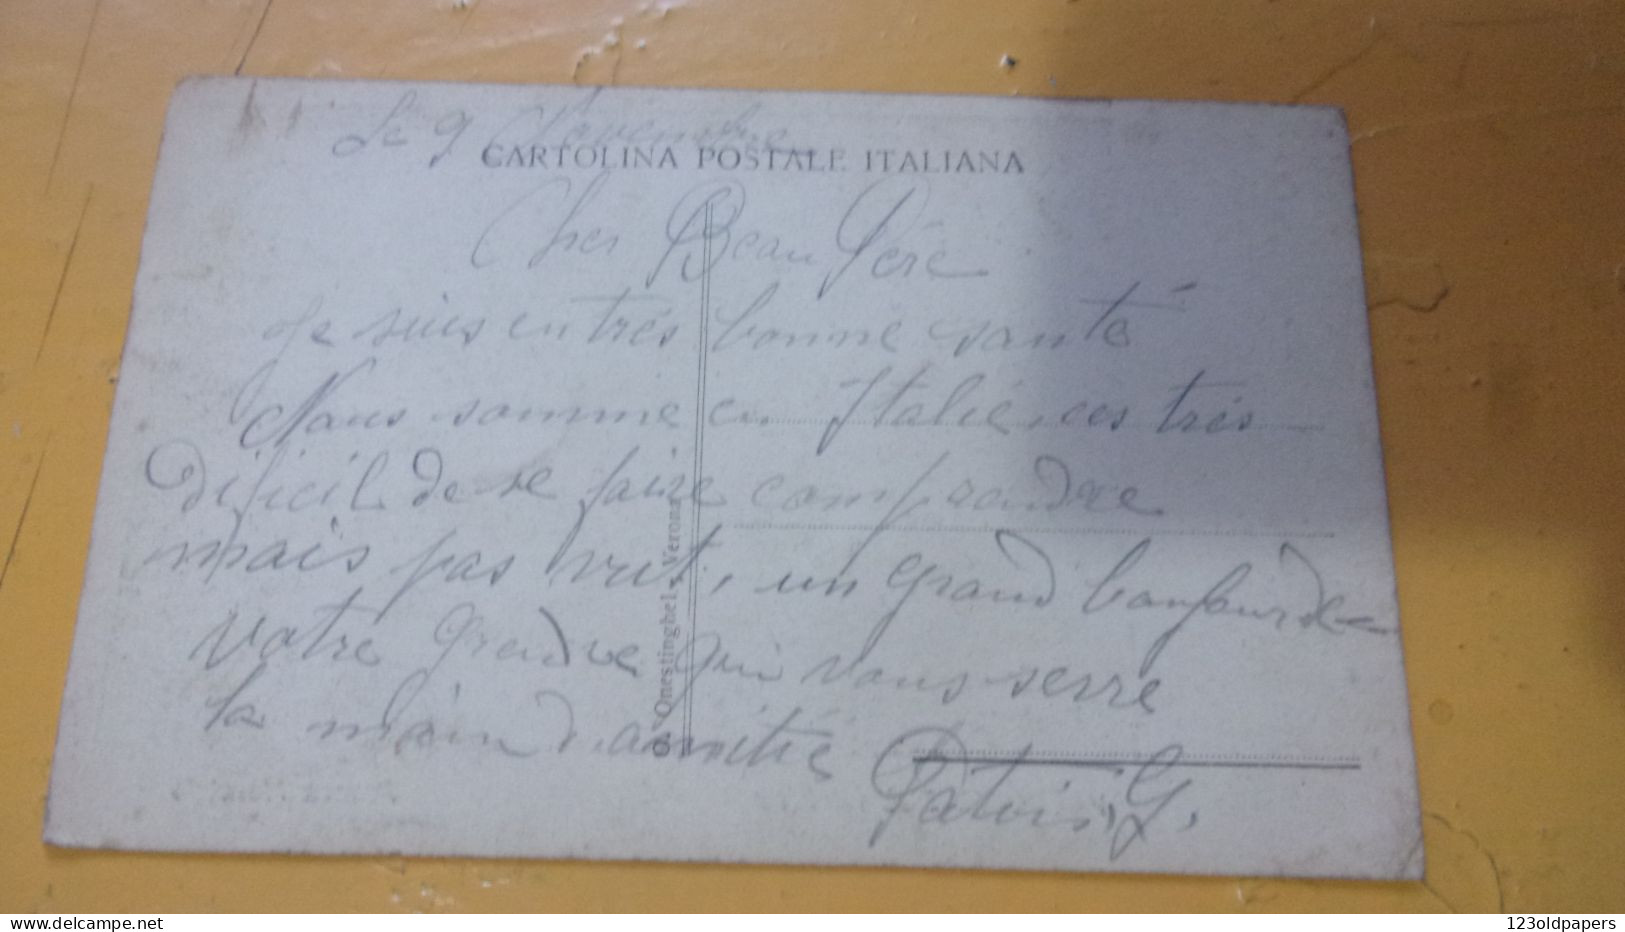 Le 9 Novembre
CARTOLINA POSTALE ITALIANA
Cher Beau Pére
Je suis en trés bonne santé
Nous somme en Italie, ces trés
dificil de se faire comprendre
mais pas tout, un grand bonjour de
votre gendre qui vous serre
la main d'amitié
Patois, G.
G. Onestinghel, Verona
123oldpapers